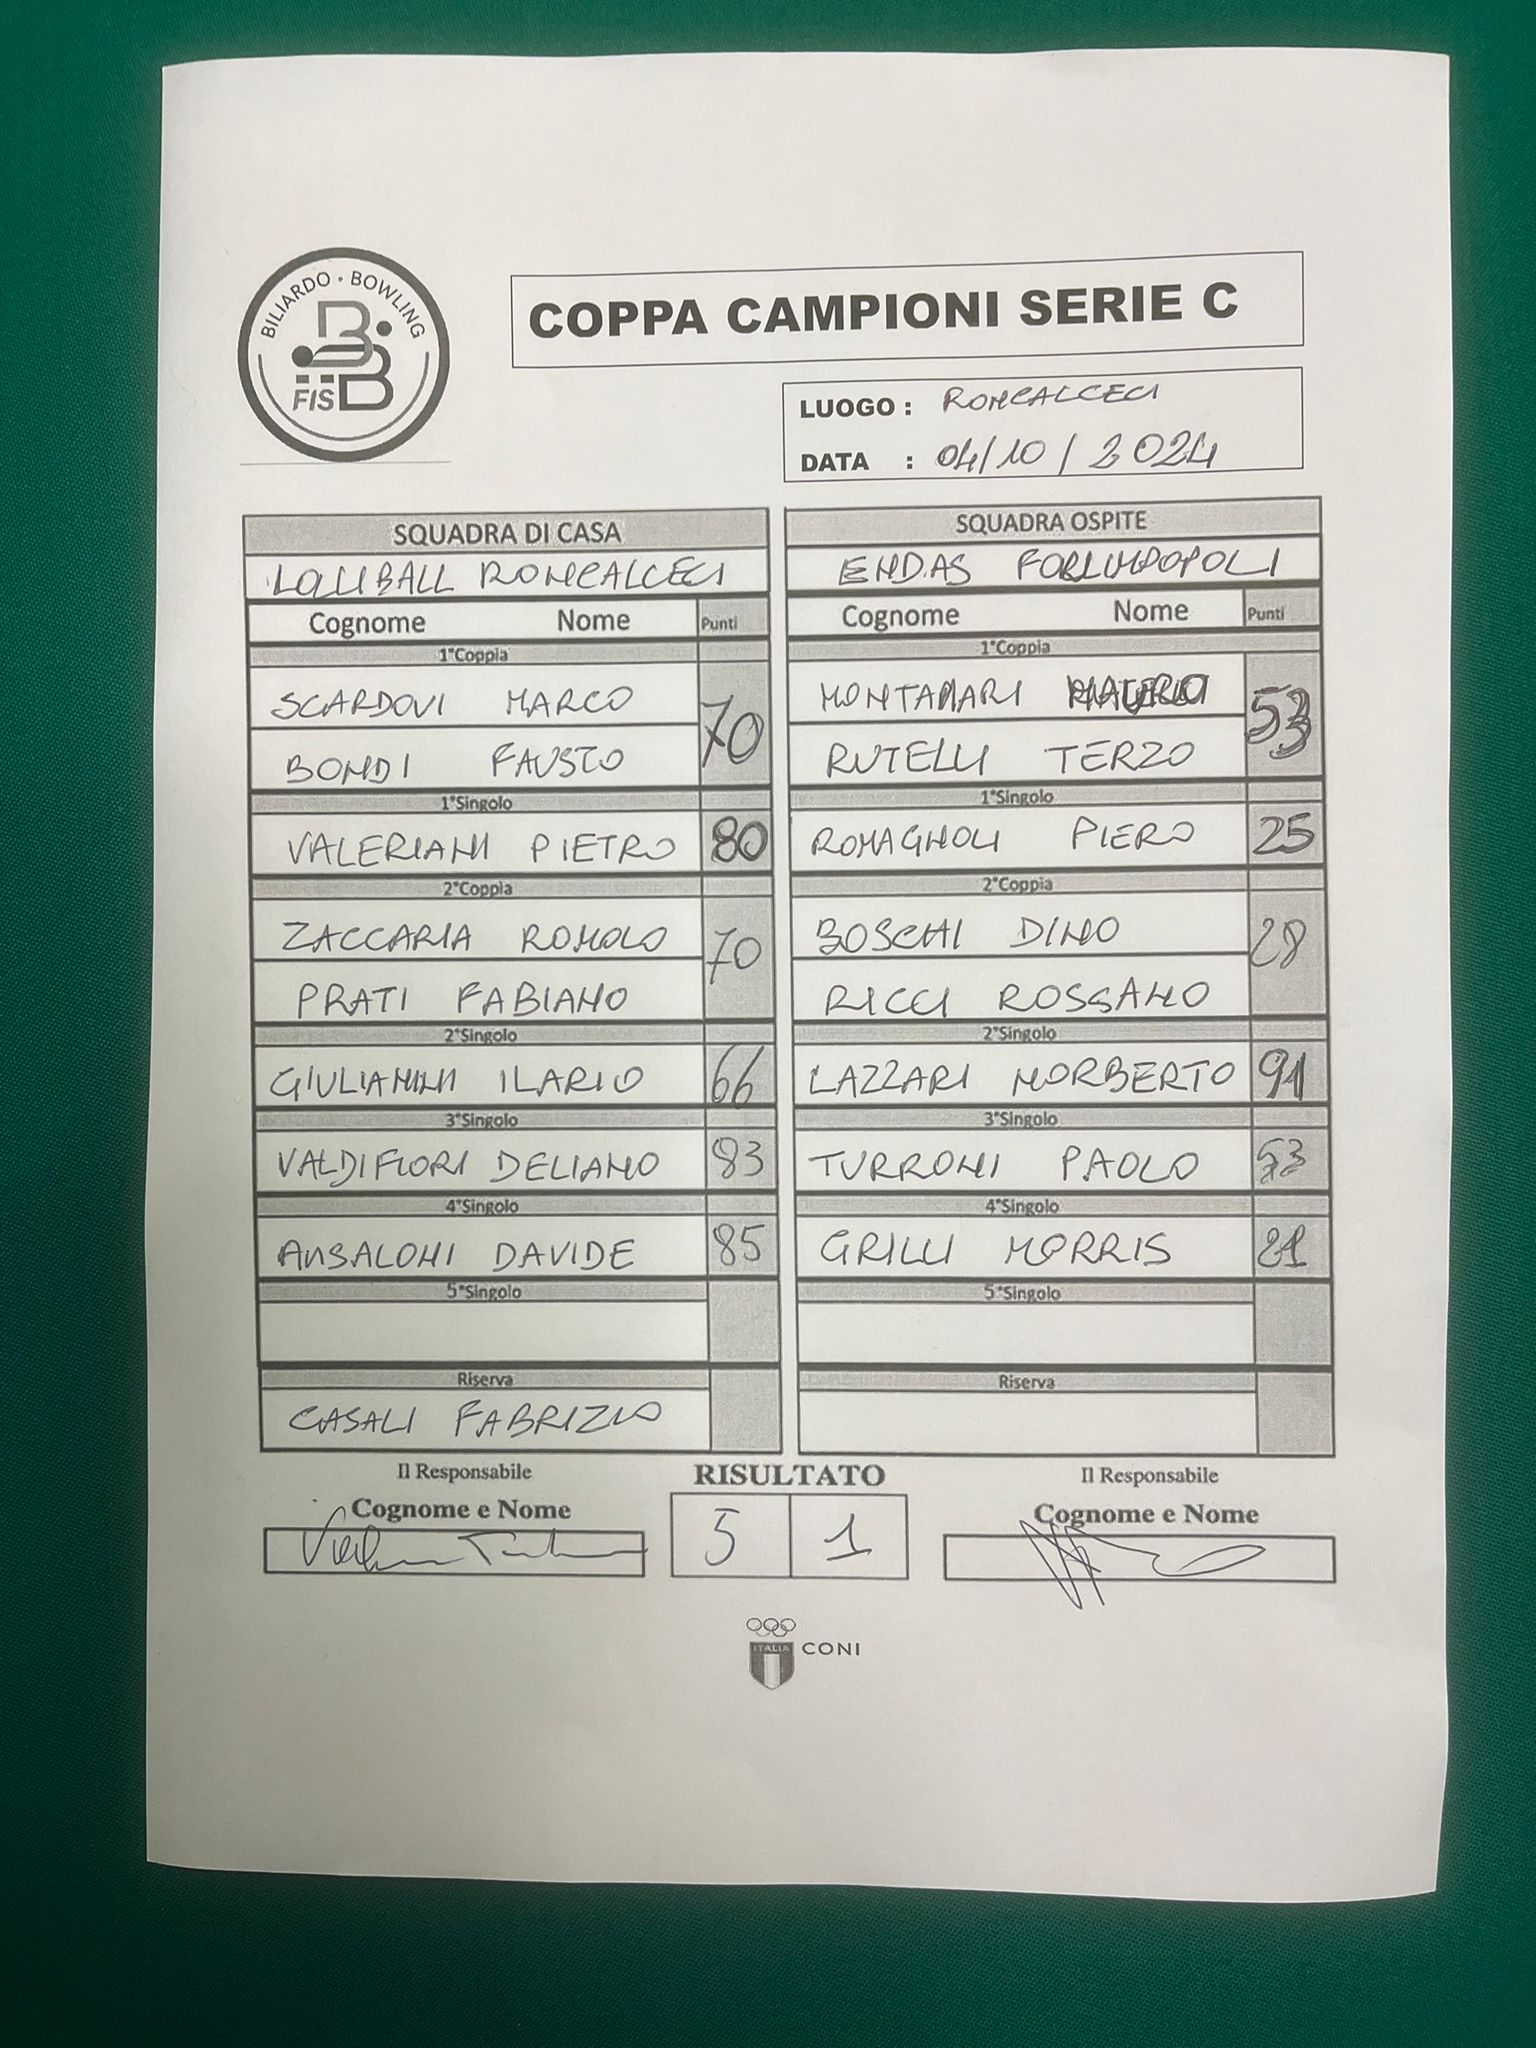 BILIARDO • BOWLING
FISBB
COPPA CAMPIONI SERIE C
LUOGO : RONCALCECI
DATA : 04/10/2024
SQUADRA DI CASA
LOLLIBALL RONCALCECI
Cognome Nome Punti
1°Coppia
SCARDOVI MARCO
70
BONDI FAUSTO
1°Singolo
VALERIANI PIETRO 80
2°Coppia
ZACCARIA ROMOLO
70
PRATI FABIANO
2°Singolo
GIULIANINI ILARIO 66
3°Singolo
VALDIFIORI DELIANO 83
4°Singolo
ANSALONI DAVIDE 85
5°Singolo
Riserva
CASALI FABRIZIO
SQUADRA OSPITE
ENDAS FORLIMPOPOLI
Cognome Nome Punti
1°Coppia
MONTANARI
53
RUTELLI TERZO
1°Singolo
ROMAGNOLI PIERO 25
2°Coppia
BOSCHI DINO
28
RICCI ROSSANO
2°Singolo
LAZZARI NORBERTO 91
3°Singolo
TURRONI PAOLO 53
4°Singolo
GRILLI MORRIS 21
5°Singolo
Riserva
Il Responsabile
Cognome e Nome
RISULTATO
5 1
Il Responsabile
Cognome e Nome
ITALIA
CONI